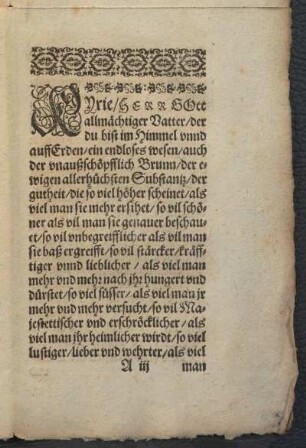 KYrie / HERR GOtt
allmächtiger Vatter / der
du bist im Himmel vnnd
auff Erden / ein endloses wesen / auch
der vnaußschöpfflich Brunn / der e-
wigen allerhüchsten Substantz / der
gutheit / die so viel höher scheinet / als
viel man sie mehr ersihet / so vil schö-
ner als vil man sie genauer beschau-
et / so vil vnbegreifflicher als vil man
sie baß ergreifft / so vil stärcker / kräff-
tiger vnnd lieblicher / als viel man
mehr vnd mehr nach jhr hungert vnd
dürstet / so viel süsser / als viel man jr
mehr vnd mehr versucht / so vil Ma-
jestettischer vnd erschröcklicher / als
viel man jhr heimlicher wirdt / so viel
lustiger / lieber vnd wehrter / als viel
A iij man